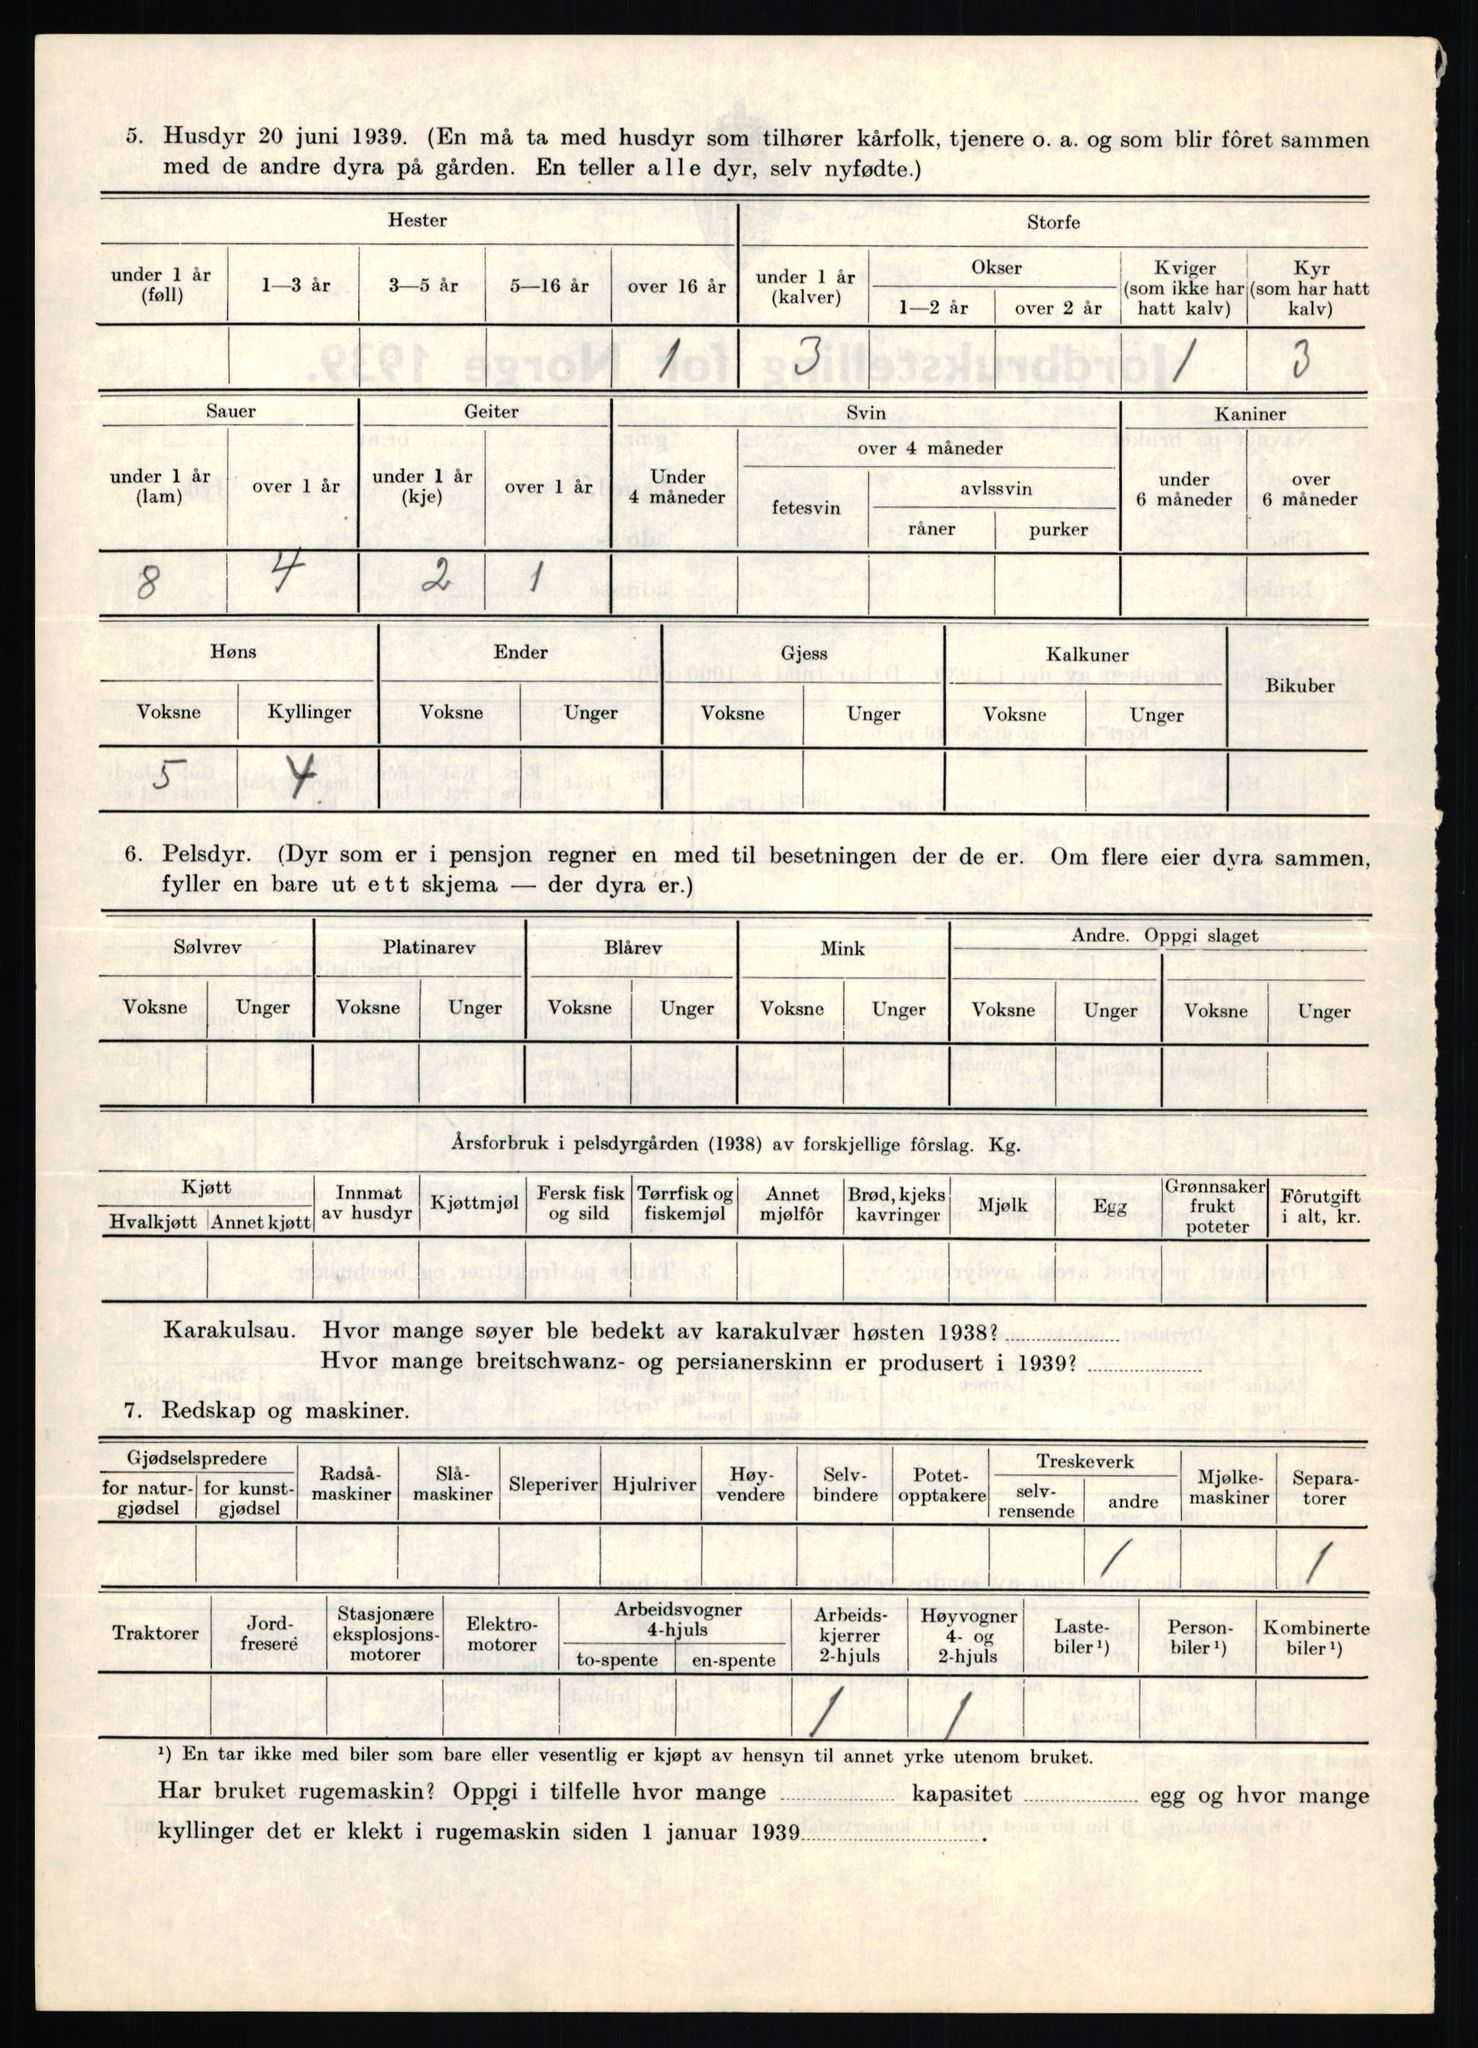 5. Husdyr 20 juni 1939. (En må ta med husdyr som tilhører kårfolk, tjenere o. a. og som blir fôret sammen
med de andre dyra på gården. En teller alle dyr, selv nyfødte.)
Hester Storfe
under 1 år (føll) 1—3 år 3—5 år 5—16 år over 16 år under 1 år (kalver) Okser 1—2 år over 2 år Kviger (som ikke har hatt kalv) Kyr (som har hatt kalv)
1 3 1 3
Sauer Geiter Svin Kaniner
under 1 år (lam) over 1 år under 1 år (kje) over 1 år Under 4 måneder over 4 måneder fetesvin avlssvin råner purker under 6 måneder over 6 måneder
8 4 2 1
Høns Ender Gjess Kalkuner Bikuber
Voksne Kyllinger Voksne Unger Voksne Unger Voksne Unger
5 4
6. Pelsdyr. (Dyr som er i pensjon regner en med til besetningen der de er. Om flere eier dyra sammen,
fyller en bare ut ett skjema — der dyra er.)
Sølvrev Platinarev Blårev Mink Andre. Oppgi slaget
Voksne Unger Voksne Unger Voksne Unger Voksne Unger Voksne Unger Voksne Unger
Årsforbruk i pelsdyrgården (1938) av forskjellige fôrslag. Kg.
Kjøtt Hvalkjøtt Annet kjøtt Innmat av husdyr Kjøttmjøl Fersk fisk og sild Tørrfisk og fiskemjøl Annet mjølfôr Brød, kjeks kavringer Mjølk Egg Grønnsaker frukt poteter Fôrutgift i alt, kr.
Karakulsau. Hvor mange søyer ble bedekt av karakulvær høsten 1938?
Hvor mange breitschwanz- og persianerskinn er produsert i 1939?
7. Redskap og maskiner.
Gjødselspredere for natur-gjødsel for kunst-gjødsel Radså-maskiner Slå-maskiner Sleperiver Hjulriver Høy-vendere Selv-bindere Potet-opptakere Treskeverk selv-rensende andre Mjølke-maskiner Separa-torer
1 1
Traktorer Jord-fresere Stasjonære eksplosjons-motorer Elektro-motorer Arbeidsvogner 4-hjuls to-spente en-spente Arbeids-kjerrer 2-hjuls Høyvogner 4- og 2-hjuls Laste-biler ¹) Person-biler ¹) Kombinerte biler ¹)
1 1
¹) En tar ikke med biler som bare eller vesentlig er kjøpt av hensyn til annet yrke utenom bruket.
Har bruket rugemaskin? Oppgi i tilfelle hvor mange kapasitet egg og hvor mange
kyllinger det er klekt i rugemaskin siden 1 januar 1939 .